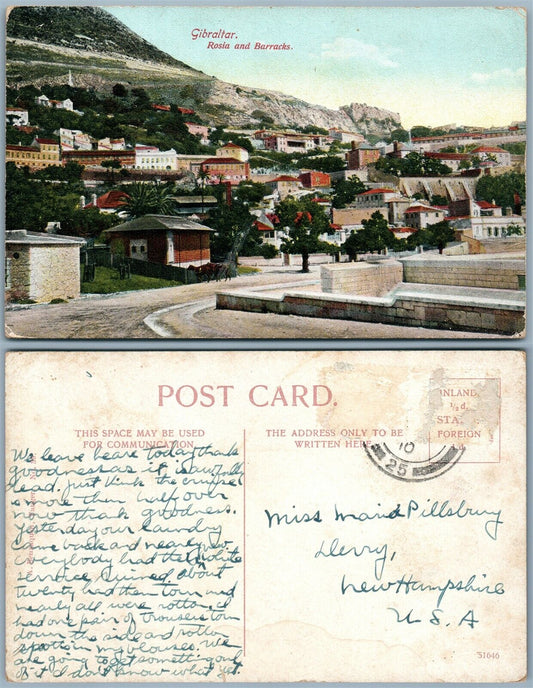 Gibraltar.
Rosia and Barracks.
POST CARD.
THIS SPACE MAY BE USED
FOR COMMUNICATION.
THE ADDRESS ONLY TO BE
WRITTEN HERE
INLAND.
½d.
STA
FOREIGN
10
25
We leave heare today thank
goodness as it is awfully
dead. Just think the cruise
is more then half over
now thank goodness.
Yesterday our laundry
came back and nearly
everybody had their new white
service ruined, about
twenty had them torn and
nearly all were rotten. I
had one pair of trousers torn
down the side and rotten
spots in my blouses. We
are going to get something out
of it I don't know what yet.
Miss Maria Pillsbury
Derry,
New Hampshire
U.S.A
51646